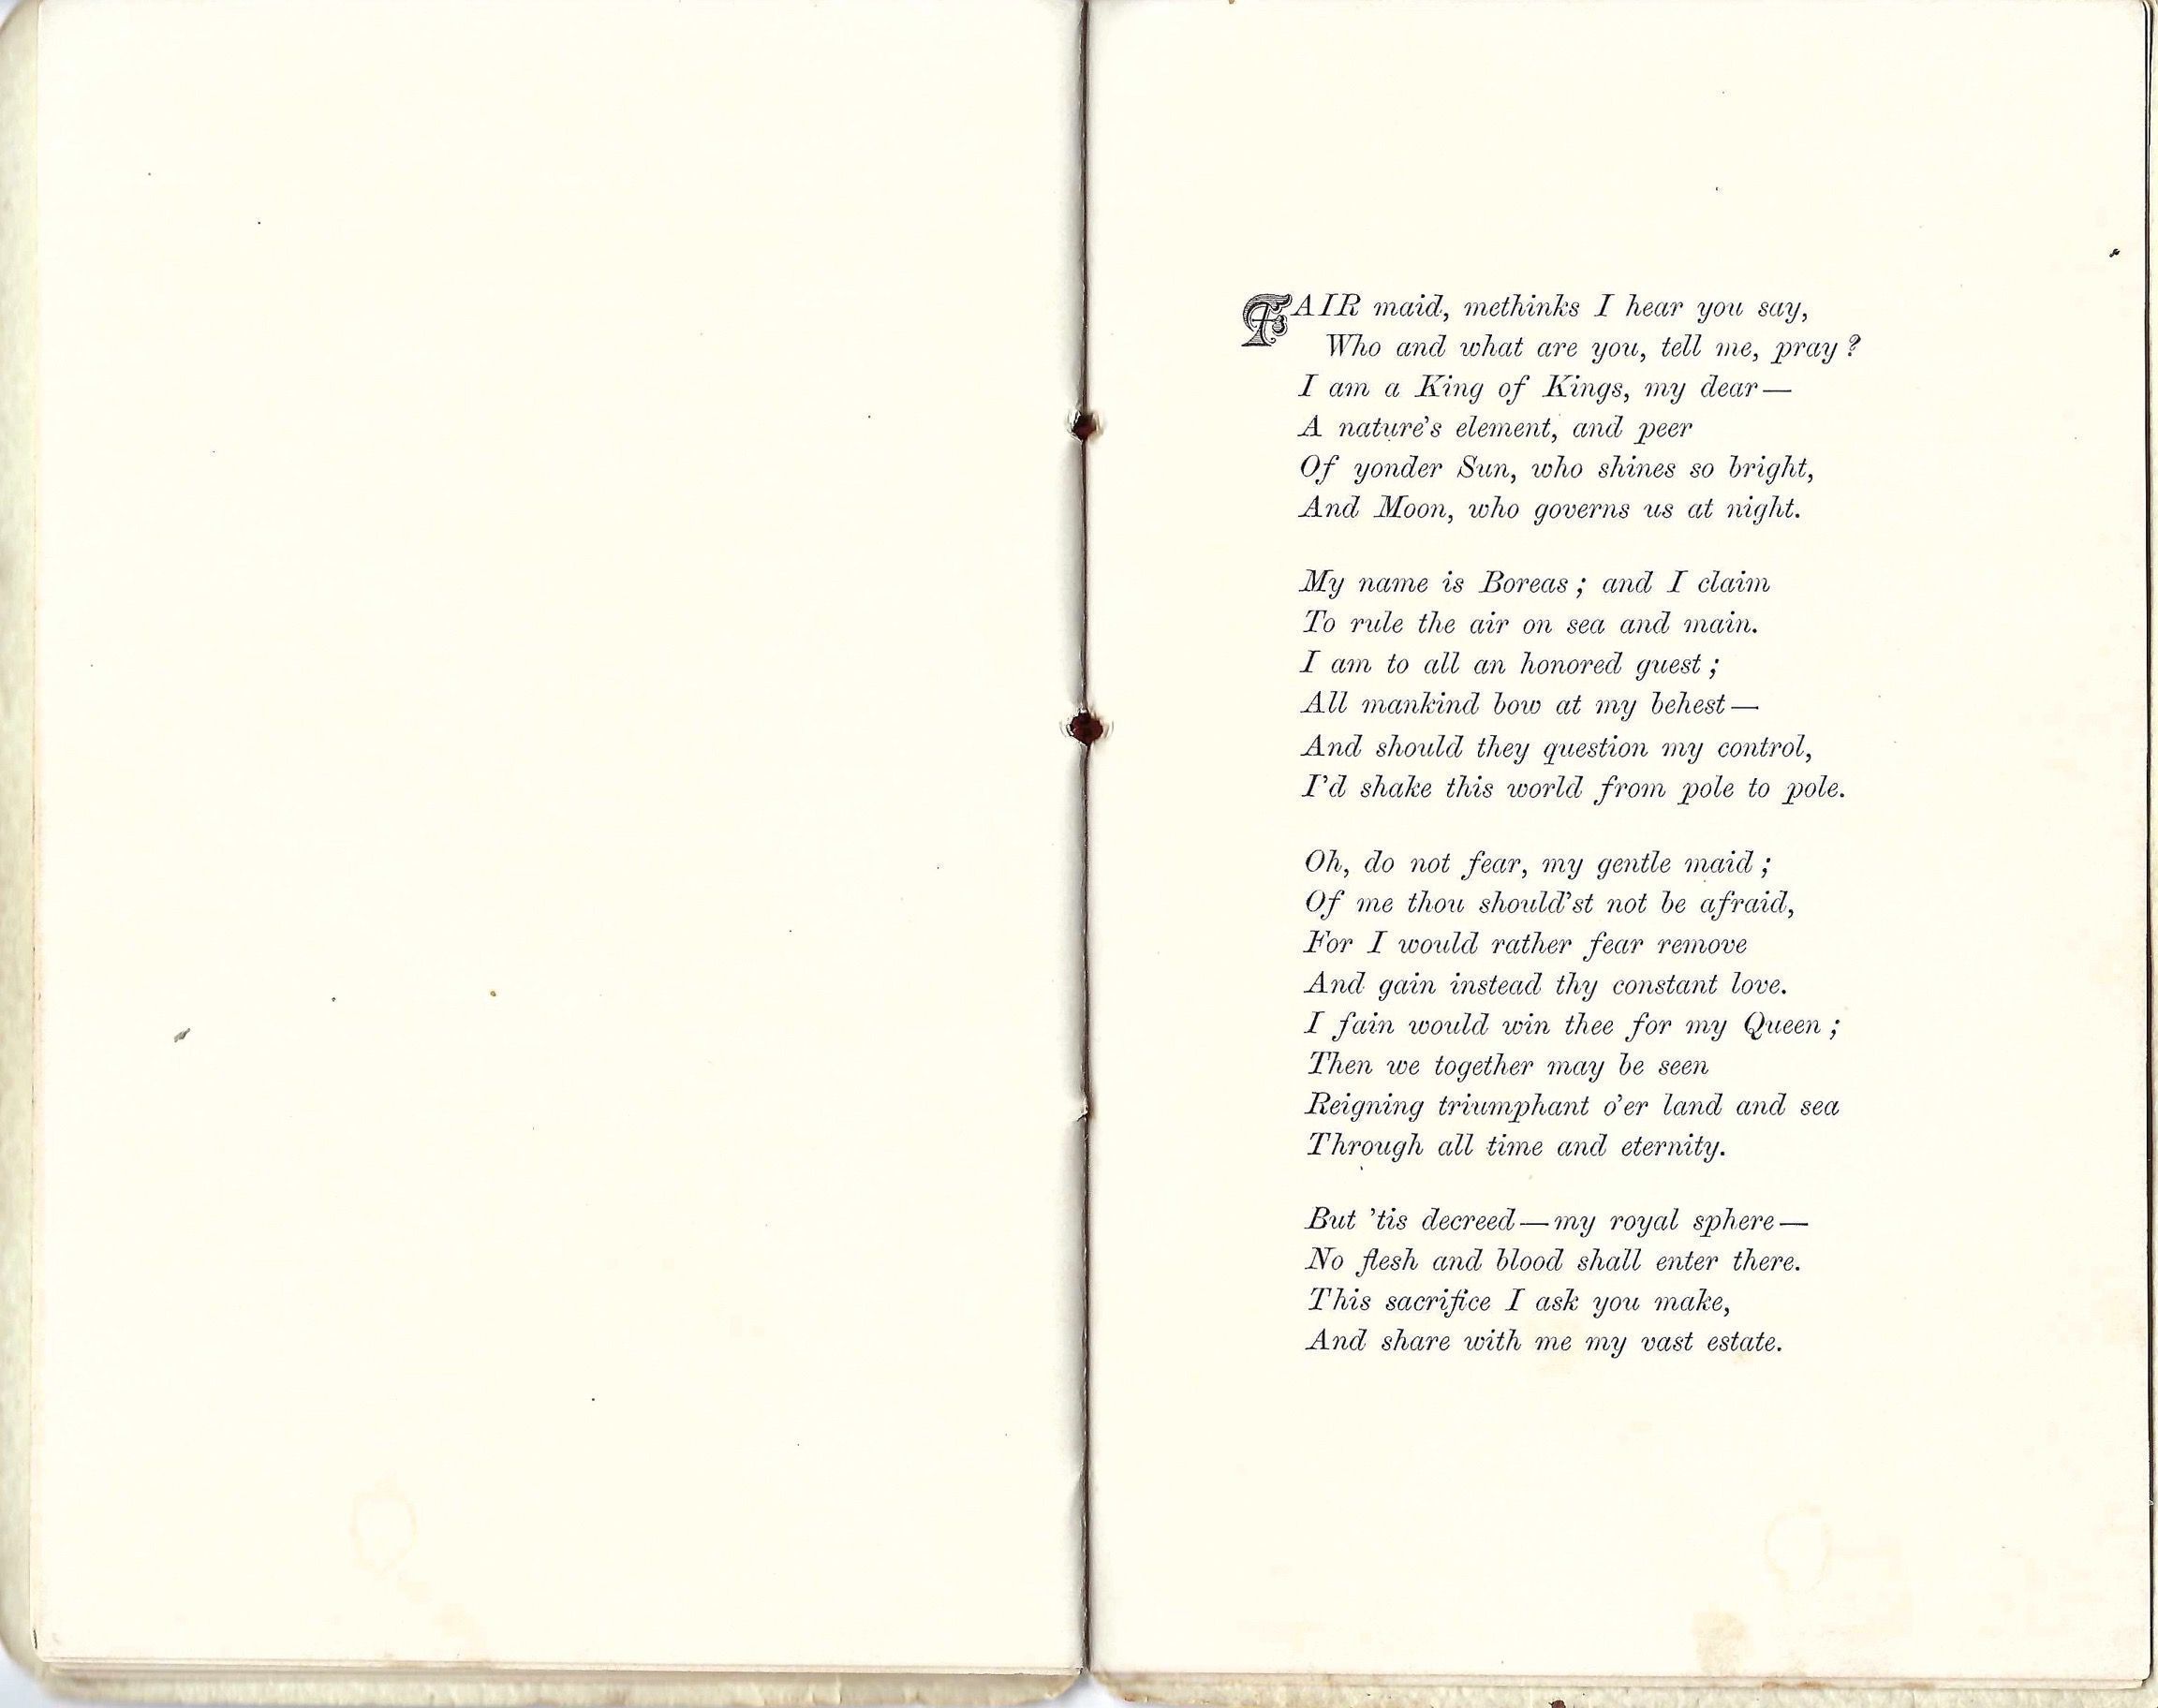 FAIR maid, methinks I hear you say,
Who and what are you, tell me, pray?
I am a King of Kings, my dear—
A nature's element, and peer
Of yonder Sun, who shines so bright,
And Moon, who governs us at night.

My name is Boreas; and I claim
To rule the air on sea and main.
I am to all an honored guest;
All mankind bow at my behest—
And should they question my control,
I'd shake this world from pole to pole.

Oh, do not fear, my gentle maid;
Of me thou should'st not be afraid,
For I would rather fear remove
And gain instead thy constant love.
I fain would win thee for my Queen;
Then we together may be seen
Reigning triumphant o'er land and sea
Through all time and eternity.

But 'tis decreed—my royal sphere—
No flesh and blood shall enter there.
This sacrifice I ask you make,
And share with me my vast estate.